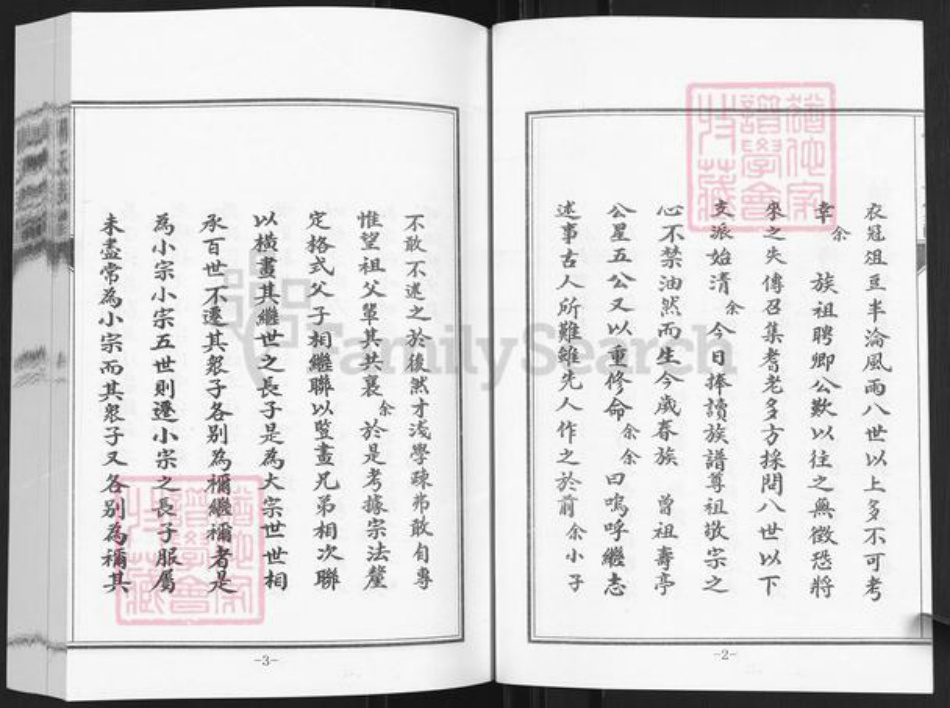 衣冠俎豆半淪風雨八世以上多不可考
幸余 族祖聘卿公歎以往之無徵恐將
來之失傳召集耆老多方採問八世以下
支派始清余今日捧讀族譜尊祖敬宗之
心不禁油然而生今歲春族 曾祖壽亭
公星五公又以重修命余余曰嗚呼繼志
述事古人所難雖先人作之於前余小子
-2-
不敢不述之於後然才淺學疎弗敢自專
惟望祖父輩其共襄余於是考據宗法釐
定格式父子相繼聯以豎畫兄弟相次聯
以橫畫其繼世之長子是為大宗世世相
承百世不遷其眾子各別為禰繼禰者是
為小宗小宗五世則遷小宗之長子服屬
未盡常為小宗而其眾子又各別為禰其
-3-
FamilySearch
譜學會
收藏